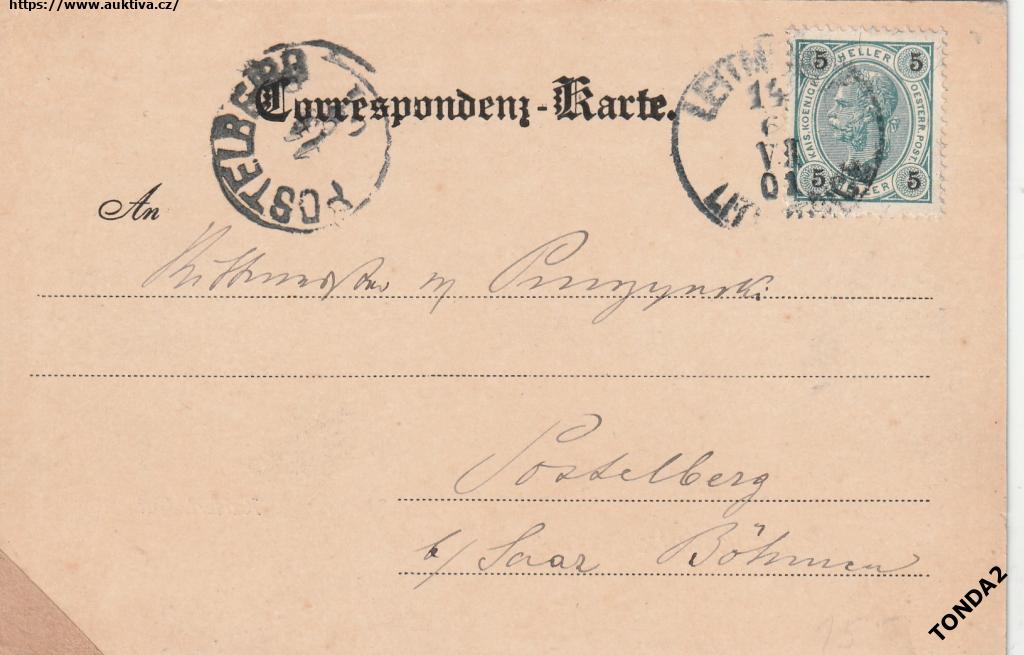 https://www.auktiva.cz/
POSTELBERG
Correspondenz-Karte.
14
VII
01
5 HELLER 5
KAIS. KOENIGL.
OESTERR. POST
5 5
An
Rittmeister
Postelberg
b/ Saaz Böhmen
TONDA2